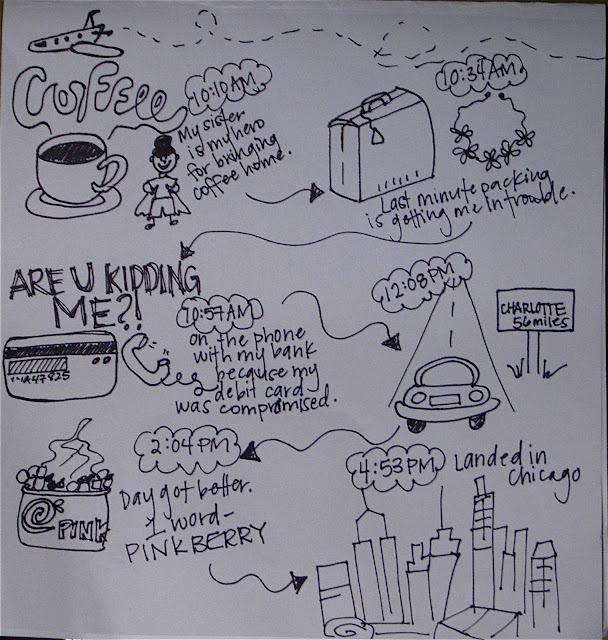 Coffee
10:10AM
My sister
is my hero
for bringing
coffee home.
10:34AM
Last minute packing
is getting me in trouble.
ARE U KIDDING
ME?!
10:57AM
on the phone
with my bank
because my
debit card
was compromised.
12:08PM
CHARLOTTE
56 miles
2:04PM
Day got better.
1 word-
PINKBERRY
PINK
4:53PM
Landed in
Chicago